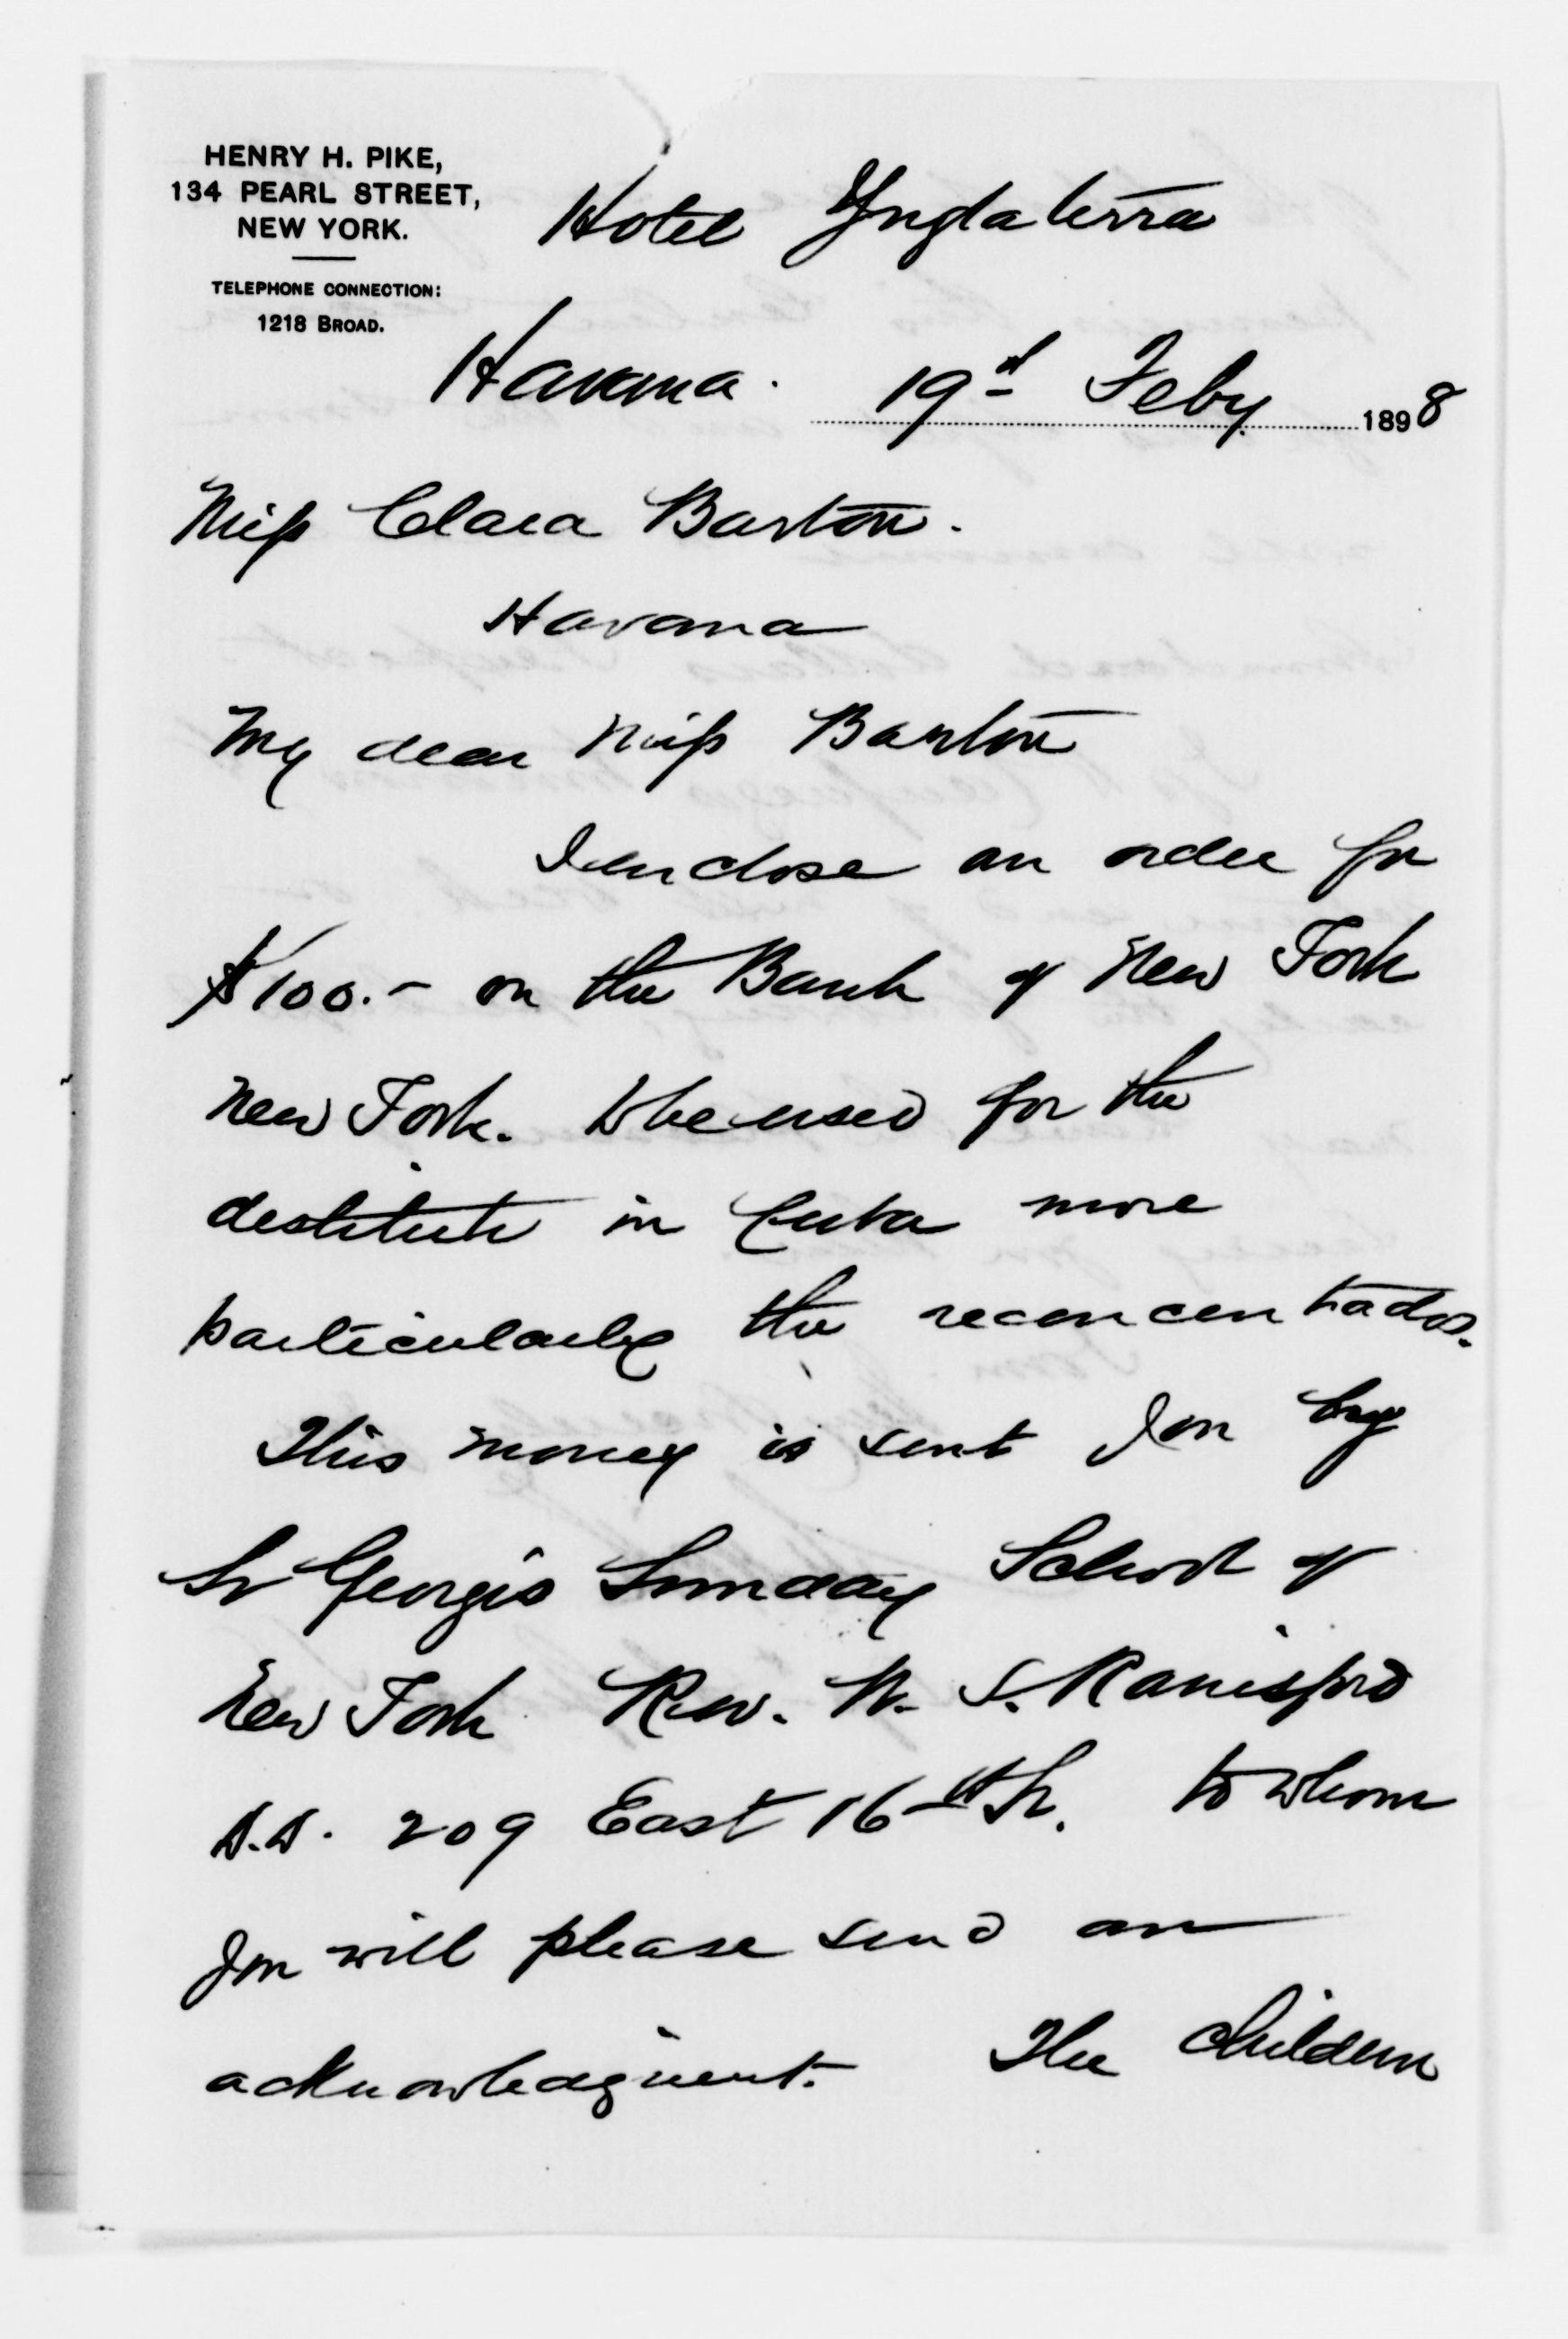 HENRY H. PIKE,
134 PEARL STREET,
NEW YORK.
TELEPHONE CONNECTION:
1218 BROAD.
Hotel Ynglaterra
Havana. 19th Feby 1898
Miss Clara Barton.
Havana
My dear Miss Barton
I enclose an order for
$100.- on the Bank of New York
New York. to be used for the
destitute in Cuba more
particularly the reconcentrados.
This money is sent you by
St Georges Sunday School of
New York Rev. W. S. Rainsford
D.D. 209 East 16th St. to whom
you will please send an
acknowledgment. The children